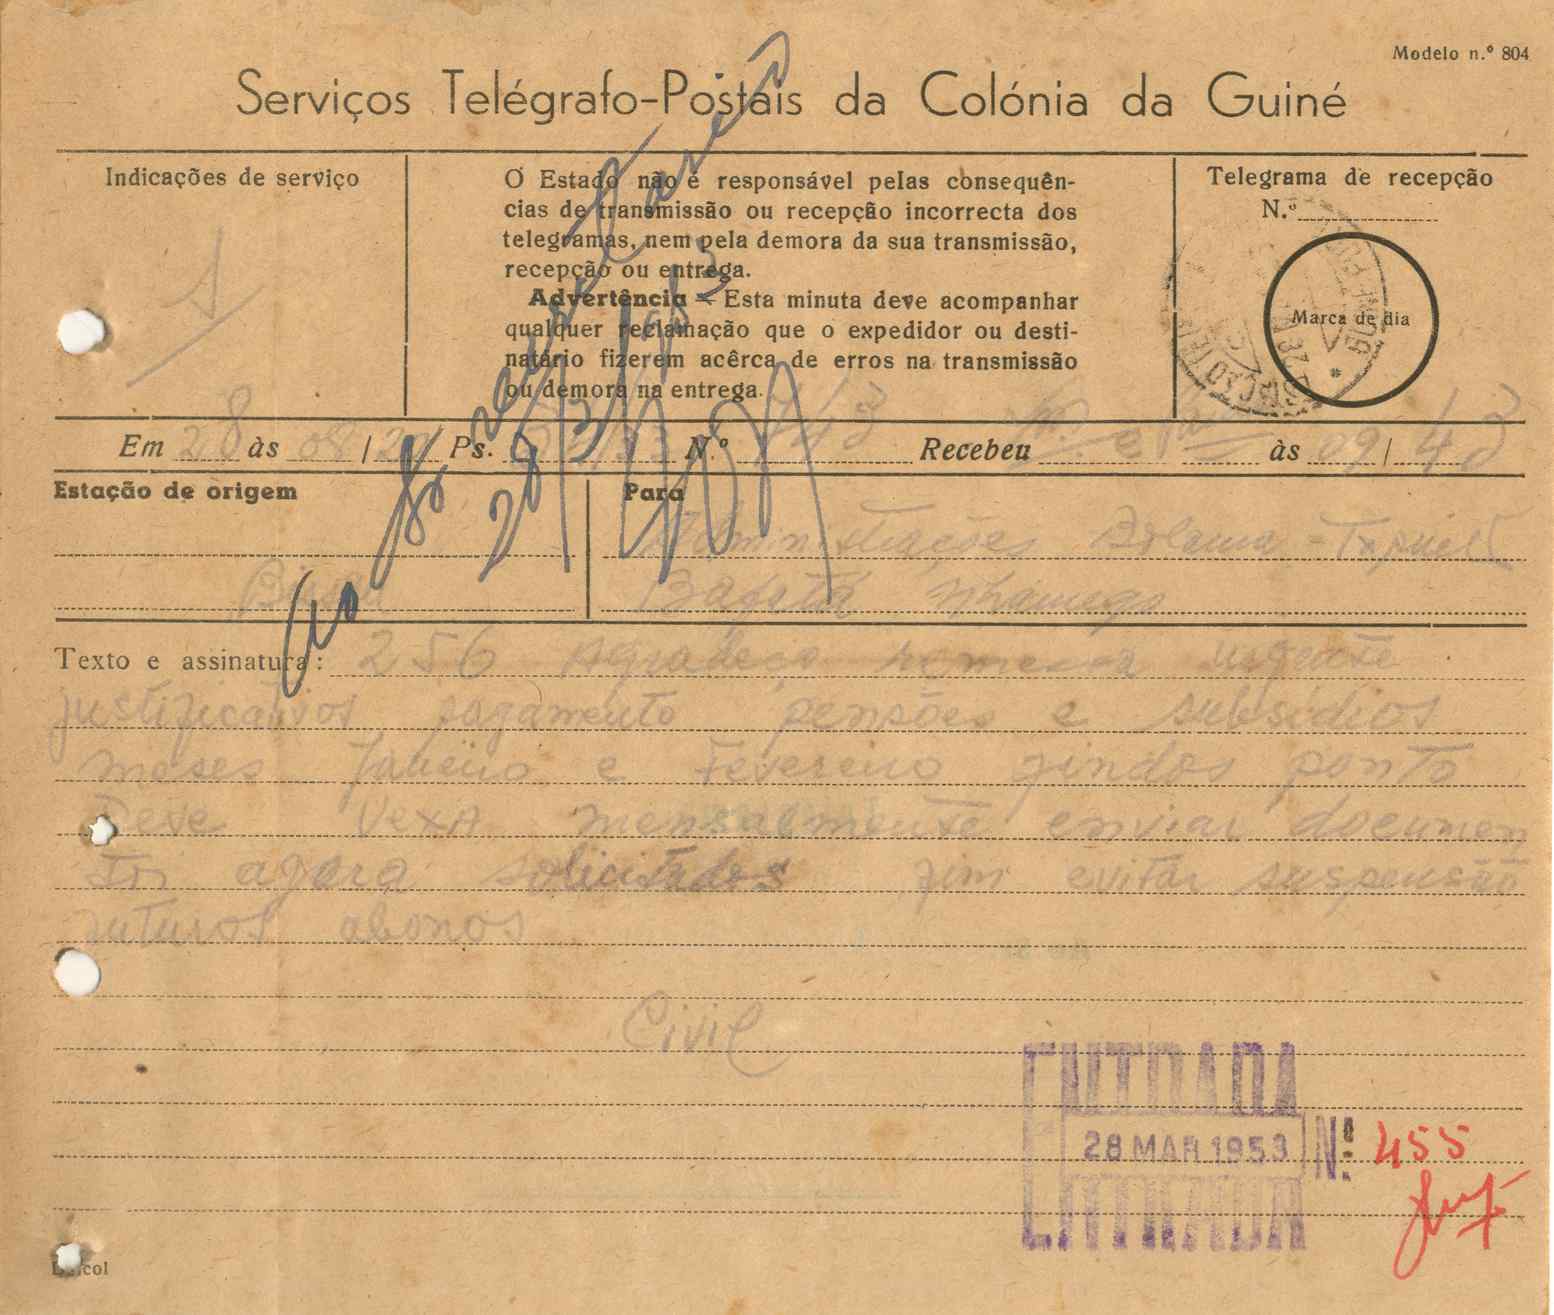 Modelo n.º 804
Serviços Telégrafo-Postais da Colónia da Guiné
Indicações de serviço
O Estado não é responsável pelas consequên-
cias de transmissão ou recepção incorrecta dos
telegramas, nem pela demora da sua transmissão,
recepção ou entrega.
Advertência — Esta minuta deve acompanhar
qualquer reclamação que o expedidor ou desti-
natário fizerem acêrca de erros na transmissão
ou demora na entrega.
Telegrama de recepção
N.º
Marca de dia
Em 28 às 08/20 Ps. N.º 743 Recebeu às 09/43
Estação de origem
Para
Administrações Bolama-
Bissau
Bafatá
Texto e assinatura: 256 Agradeço remessa urgente
justificativos pagamento pensões e subsídios
meses Janeiro e Fevereiro findos ponto
Deve Vexa mensalmente enviar documen
tos agora solicitados fim evitar suspensão
futuros abonos
Civil
ENTRADA
28 MAR 1953
Nº 455
ENTRADA